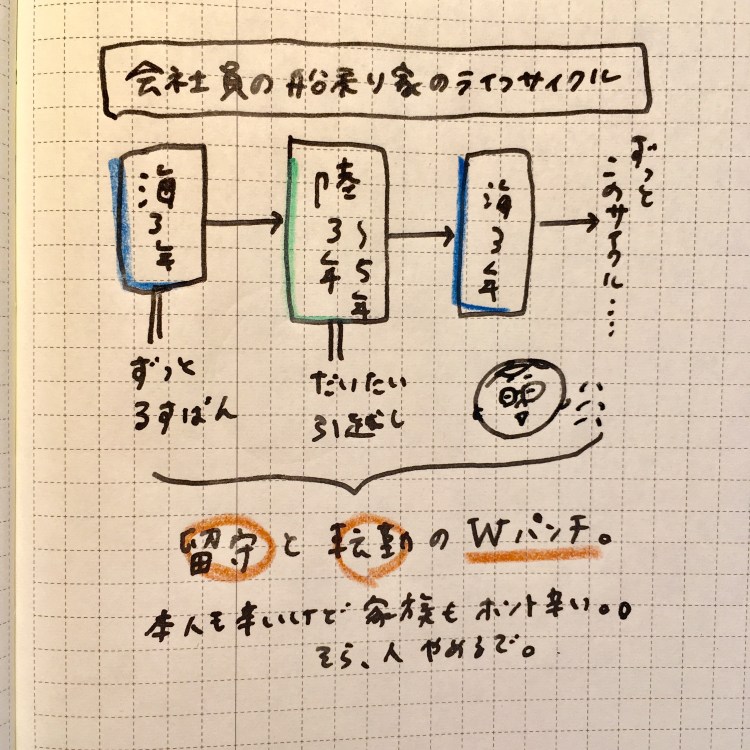 会社員の船乗り家のライフサイクル
海3年
陸3年〜5年
海3年
ずっと
このサイクル……
ずっと
るすばん
だいたい
引越し
留守と転勤のWパンチ。
本人も辛いけど家族もホント辛い。。
そら、人やめるで。